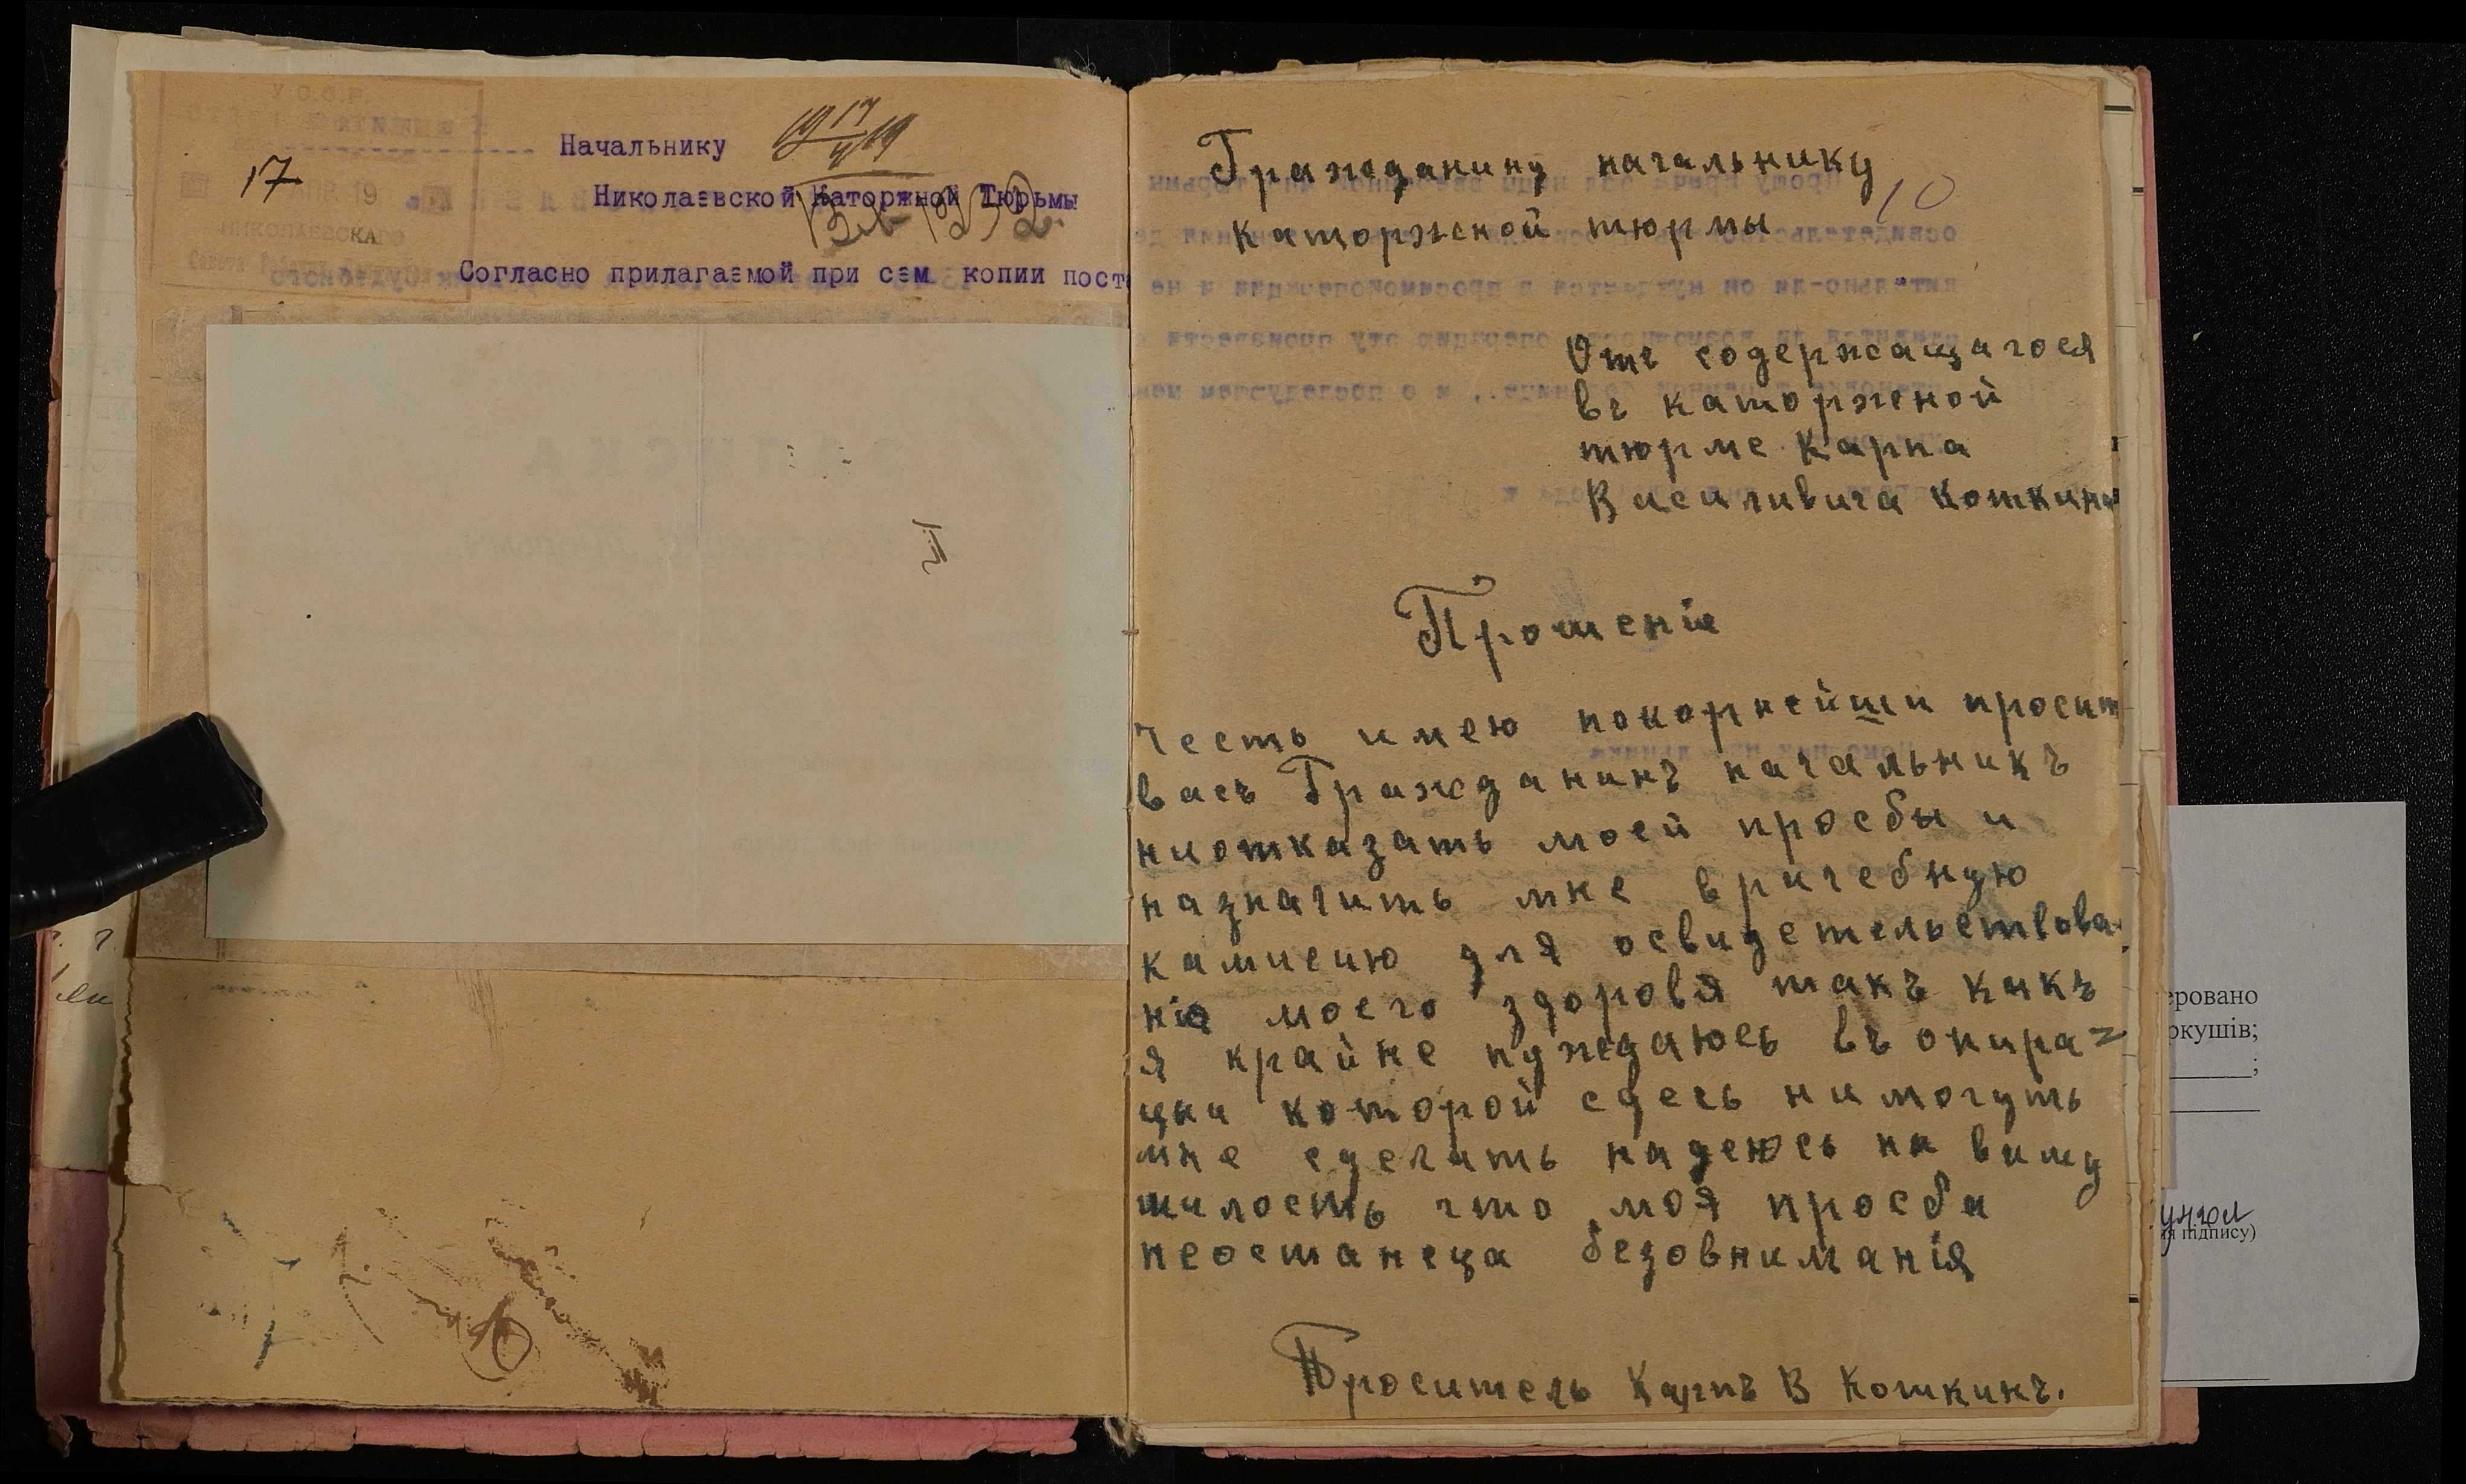 У С.С.Р.
17
АПР. 19
НИКОЛАЕВСКАГО
Начальнику
Николаевской Каторжной Тюрьмы
Согласно прилагаемой при сем копии пост
10
Гражданину начальнику
каторжной тюрмы
Отъ содержащагося
въ каторжной
тюрме Карпа
Василивича Кошкина
Прошеніе
Честь имею покорнейши просит
васъ Гражданинъ начальникъ
ниотказать моей просбы и
назначить мне вричебную
камисию для освидетельствова
нія моего здоровя такъ какъ
я крайне нуждаюсь въ опира=
ции которой сдесь нимогуть
мне сделать надеюсь на вашу
милость что моя просба
неостанеца безовниманія
Проситель Карпъ В Кошкинъ.
еровано
ркушів;
;
підпису)